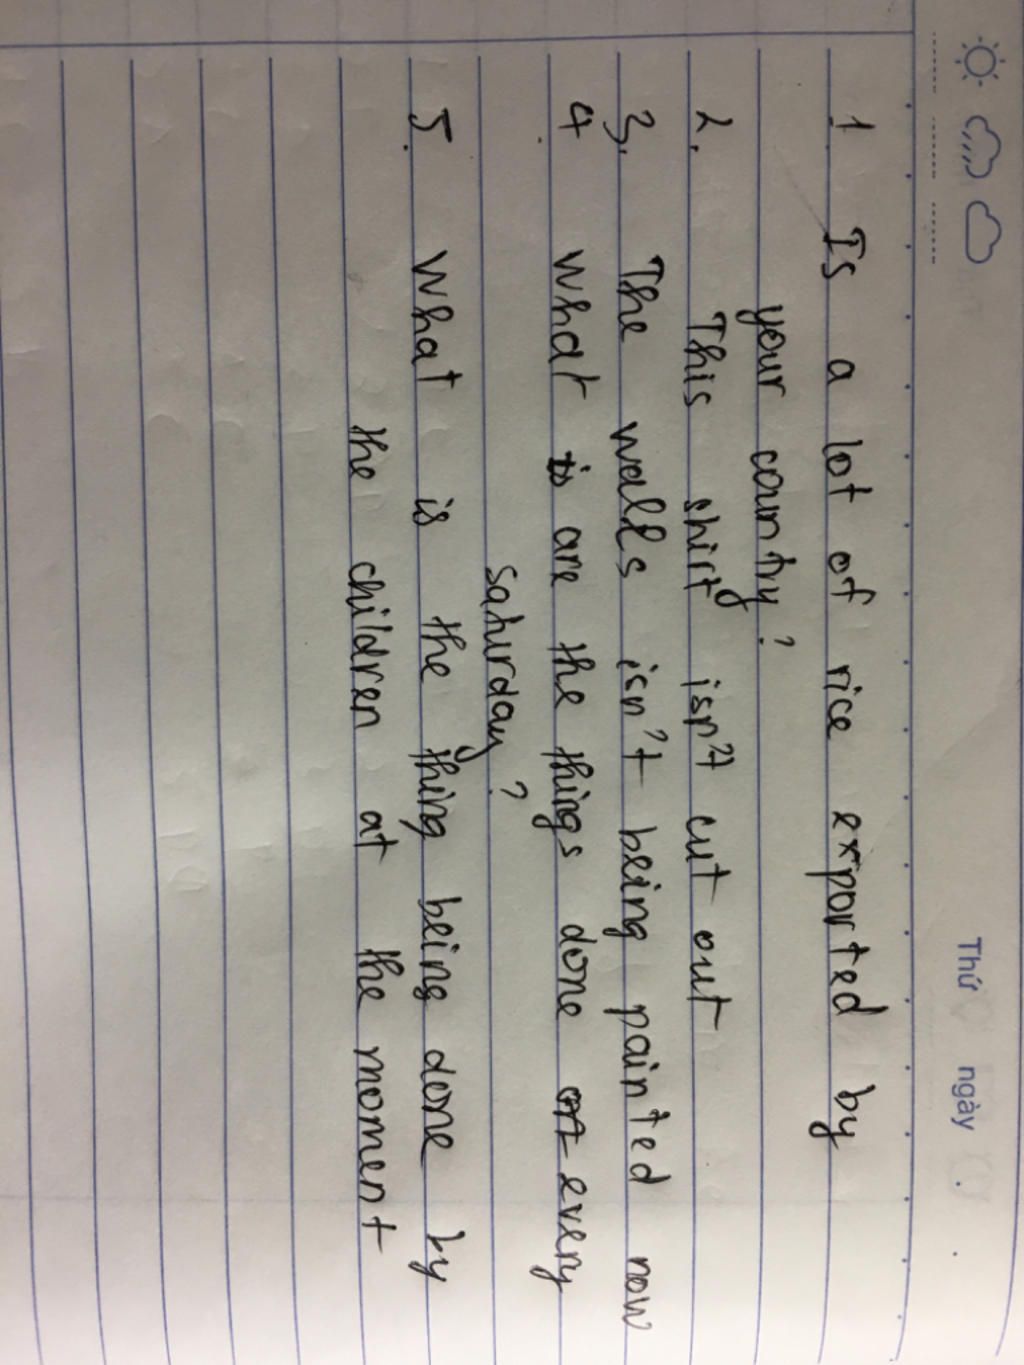 Thứ ngày
1 Is a lot of rice exported by
your country?
2. This shirt isn't cut out
3. The walls isn't being painted now
4 What is are the things done on every
saturday?
5. What is the thing being done by
the children at the moment